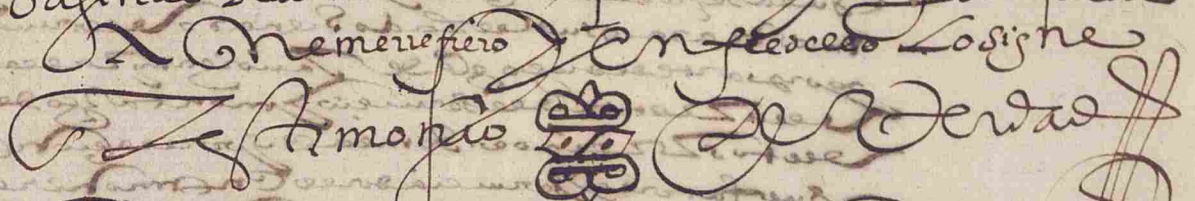 A que me rrefiero y En fee dello Lo signe
En testimonio de Verdad